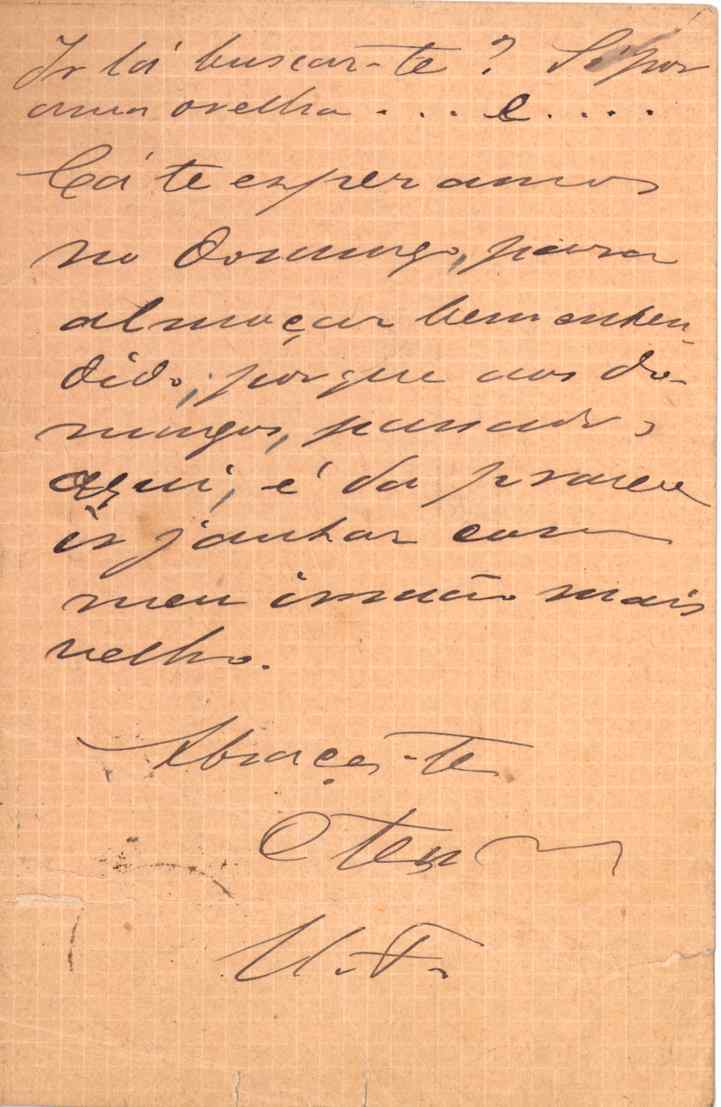 Ir lá buscar-te? Só por
uma ovelha . . . . e . . . .
Cá te esperamos
no Domingo, para
almoçar bem enten-
dido, porque aos do-
mingos, passados
aqui, é da praxe
ir jantar com
meu irmão mais
velho.
Abraça-te
O teu